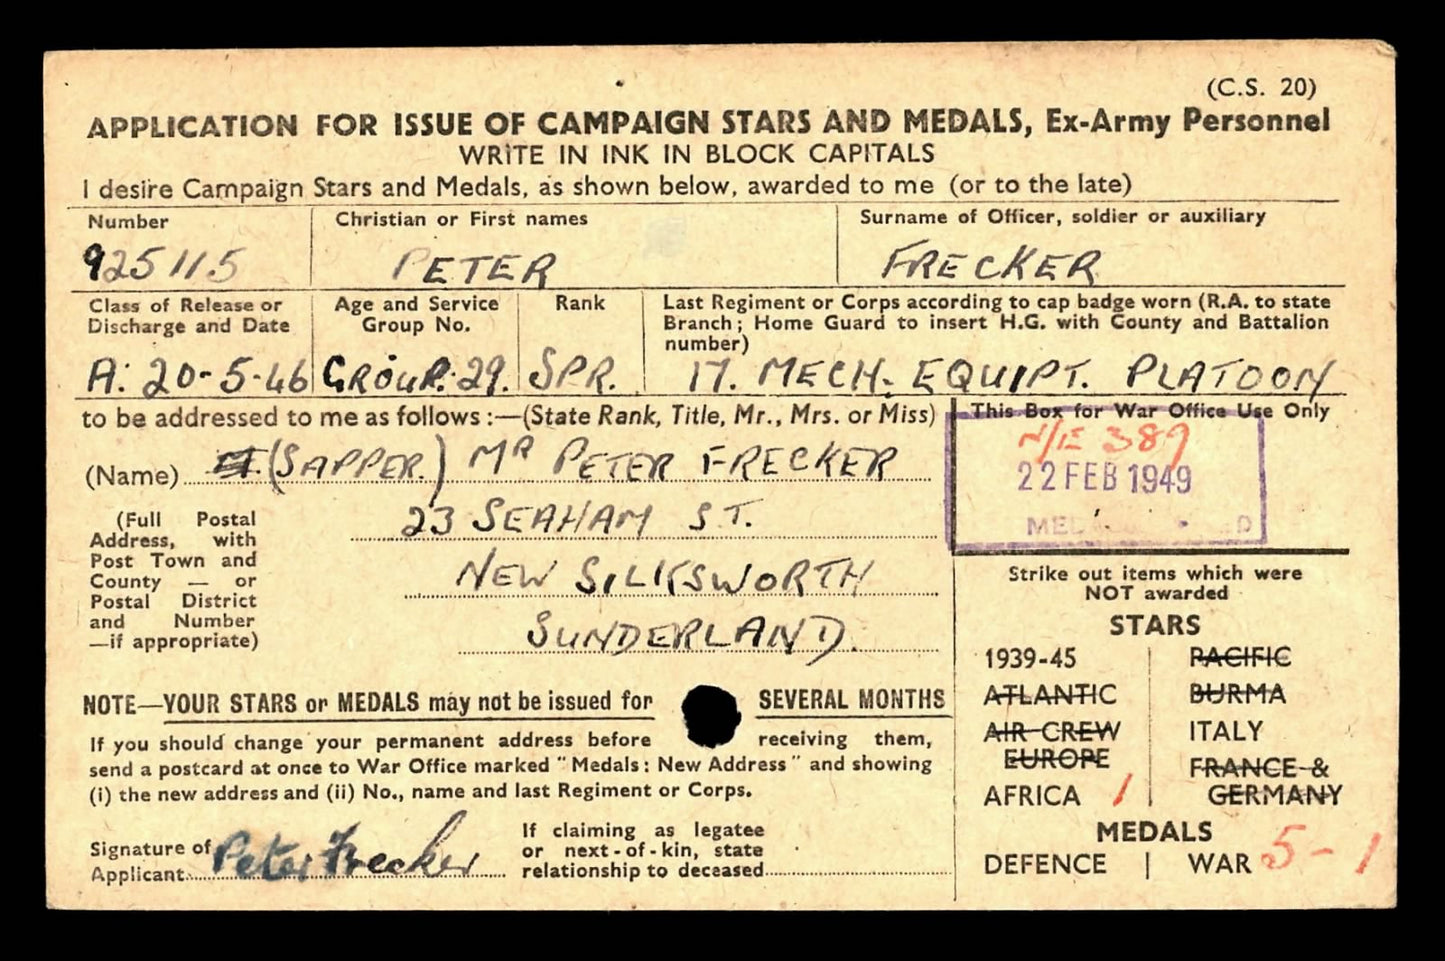 (C.S. 20)
APPLICATION FOR ISSUE OF CAMPAIGN STARS AND MEDALS, Ex-Army Personnel
WRITE IN INK IN BLOCK CAPITALS
I desire Campaign Stars and Medals, as shown below, awarded to me (or to the late)
Number
925115
Christian or First names
PETER
Surname of Officer, soldier or auxiliary
FRECKER
Class of Release or
Discharge and Date
A: 20-5-46
Age and Service
Group No.
GROUP. 29.
Rank
SPR.
Last Regiment or Corps according to cap badge worn (R.A. to state
Branch; Home Guard to insert H.G. with County and Battalion
number)
17. MECH. EQUIPT. PLATOON
to be addressed to me as follows :—(State Rank, Title, Mr., Mrs. or Miss)
(Name) (SAPPER.) MR PETER FRECKER
(Full Postal
Address, with
Post Town and
County — or
Postal District
and Number
—if appropriate)
23 SEAHAM ST.
NEW SILKSWORTH
SUNDERLAND.
This Box for War Office Use Only
N/E 389
22 FEB 1949
Strike out items which were
NOT awarded
STARS
1939-45
ATLANTIC
AIR CREW
EUROPE
AFRICA 1
PACIFIC
BURMA
ITALY
FRANCE &
GERMANY
MEDALS
DEFENCE | WAR 5 - 1
NOTE—YOUR STARS or MEDALS may not be issued for SEVERAL MONTHS
If you should change your permanent address before receiving them,
send a postcard at once to War Office marked "Medals: New Address" and showing
(i) the new address and (ii) No., name and last Regiment or Corps.
Signature of
Applicant Peter Frecker
If claiming as legatee
or next-of-kin, state
relationship to deceased